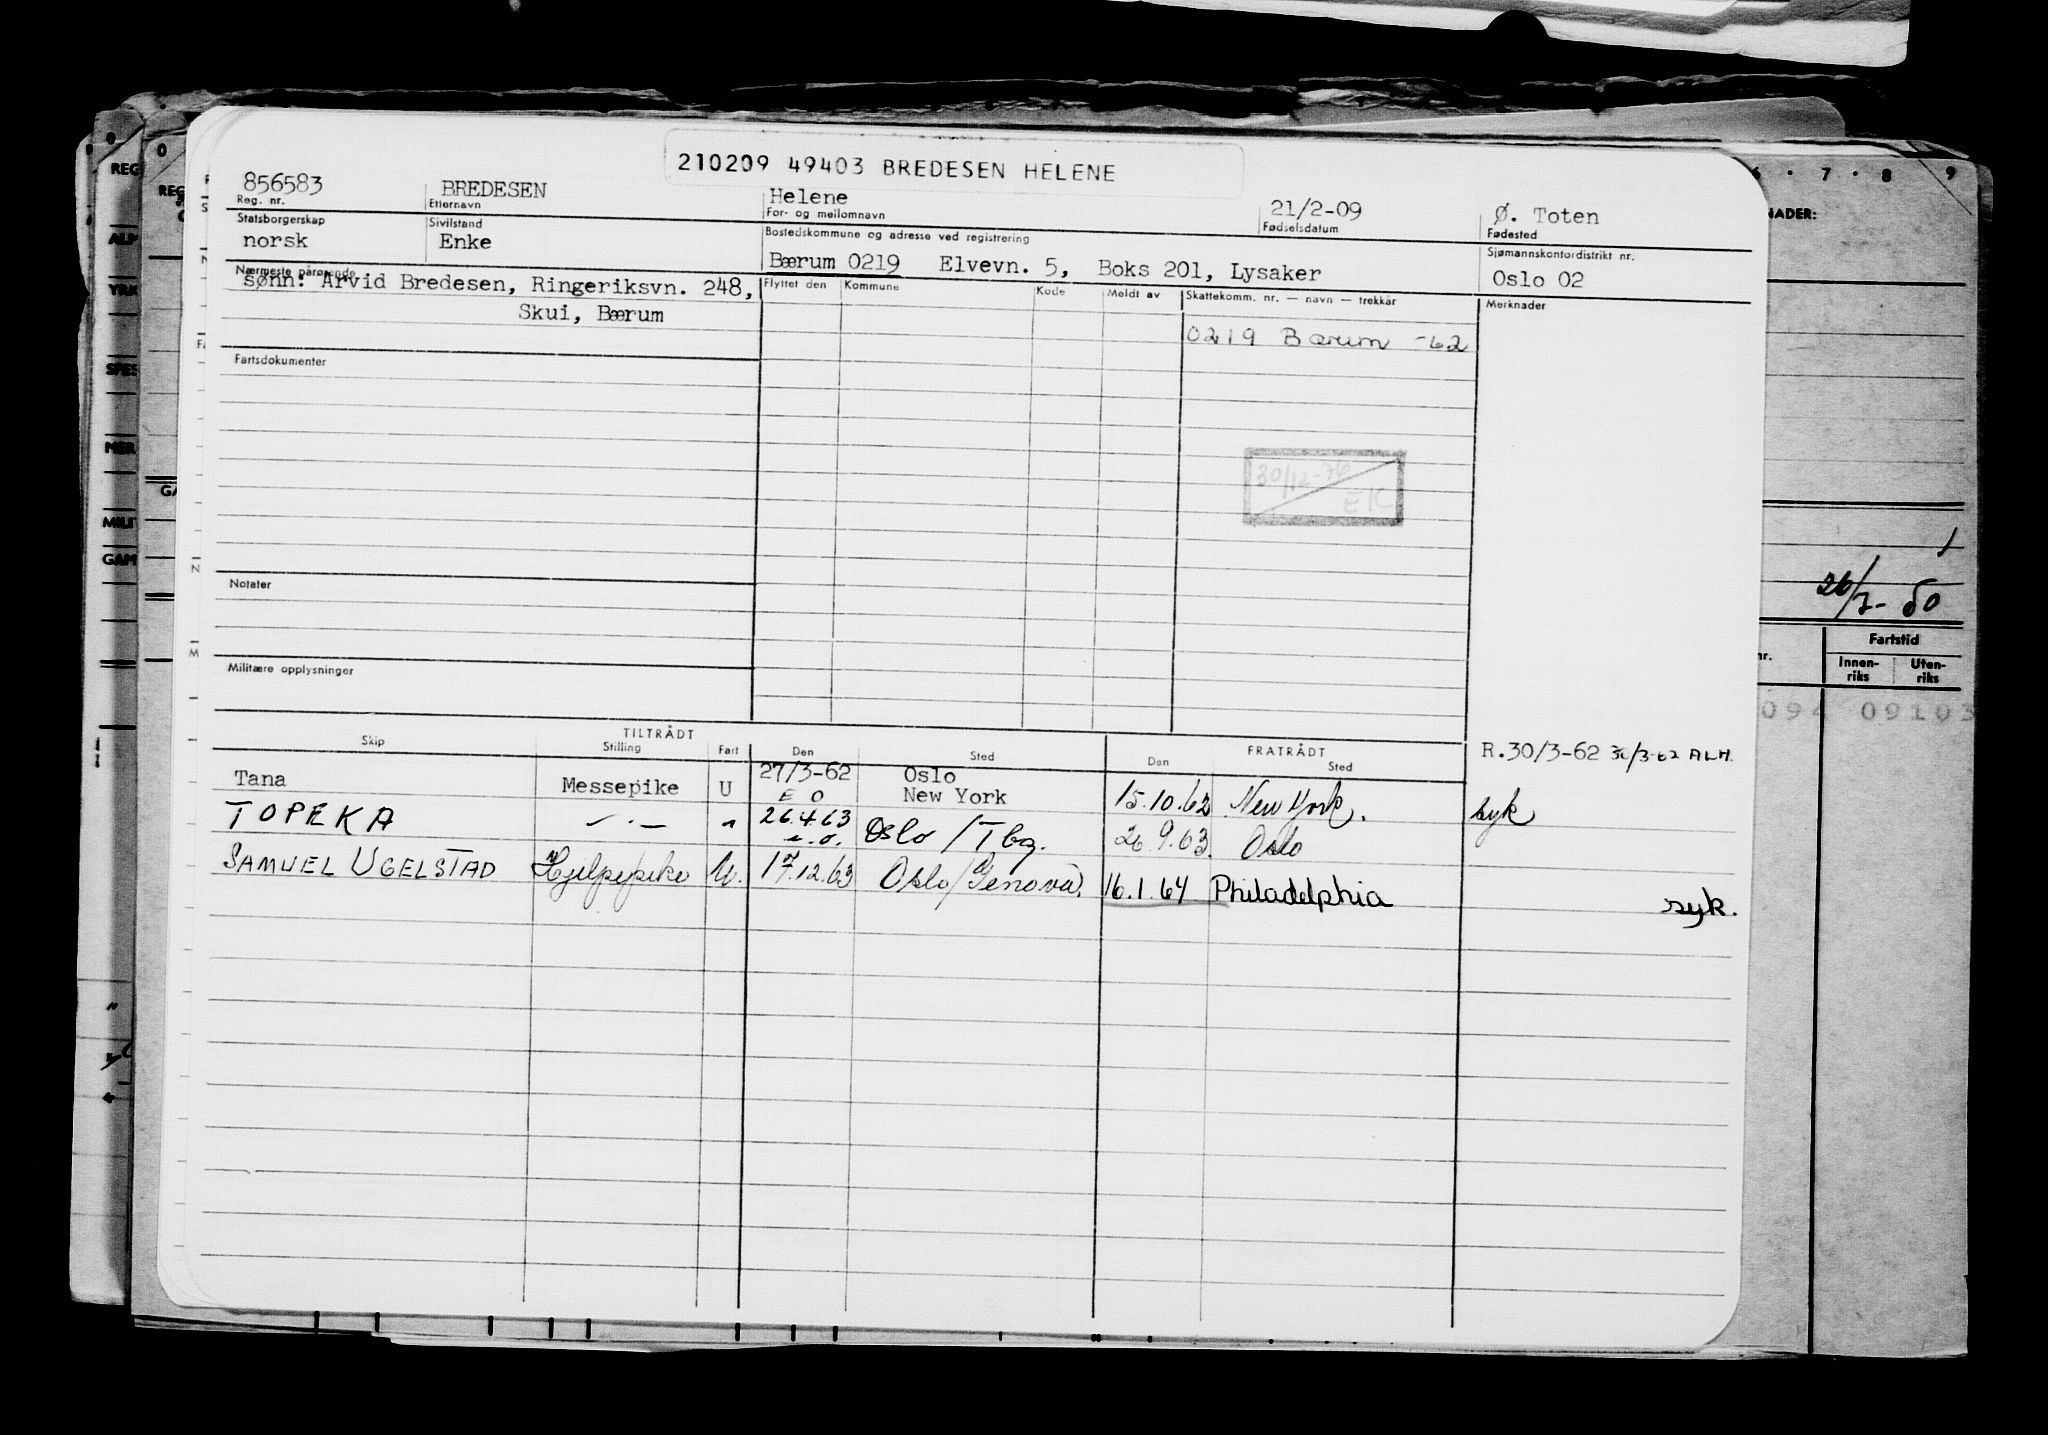 210209 49403 BREDESEN HELENE
856583 BREDESEN Helene 21/2-09 Ø. Toten
Reg. nr. Etternavn For- og mellomnavn Fødselsdatum Fødested
Statsborgerskap Sivilstand Bostedskommune og adresse ved registrering Sjømannskontordistrikt nr.
norsk Enke Bærum 0219 Elvevn. 5, Boks 201, Lysaker Oslo 02
Nærmeste pårørende Flyttet den Kommune Kode Meldt av Skattekomm. nr. — navn — trekkår Merknader
sønn: Arvid Bredesen, Ringeriksvn. 248,
Skui, Bærum
0219 Bærum -62
Fartsdokumenter
30/12-76
EK
Notater
Militære opplysninger
TILTRÅDT FRATRÅDT
Skip Stilling Fart Den Sted Den Sted
R.30/3-62 30/3-62 ALM.
Tana Messepike U 27/3-62 Oslo
E O New York 15.10.62 New York. syk
TOPEKA —·— " 26.4.63 Oslo / Tbg. 26.9.63. Oslo
e.o.
SAMUEL UGELSTAD Hjelpepike U. 17.12.63 Oslo/Genova. 16.1.64 Philadelphia syk.
REG
ALM
YRK
SPES
MER
MILI
GAM
NADER:
7 · 8 9
26/7-50
Fartstid
nr. Innen-
riks Uten-
riks
094 09103